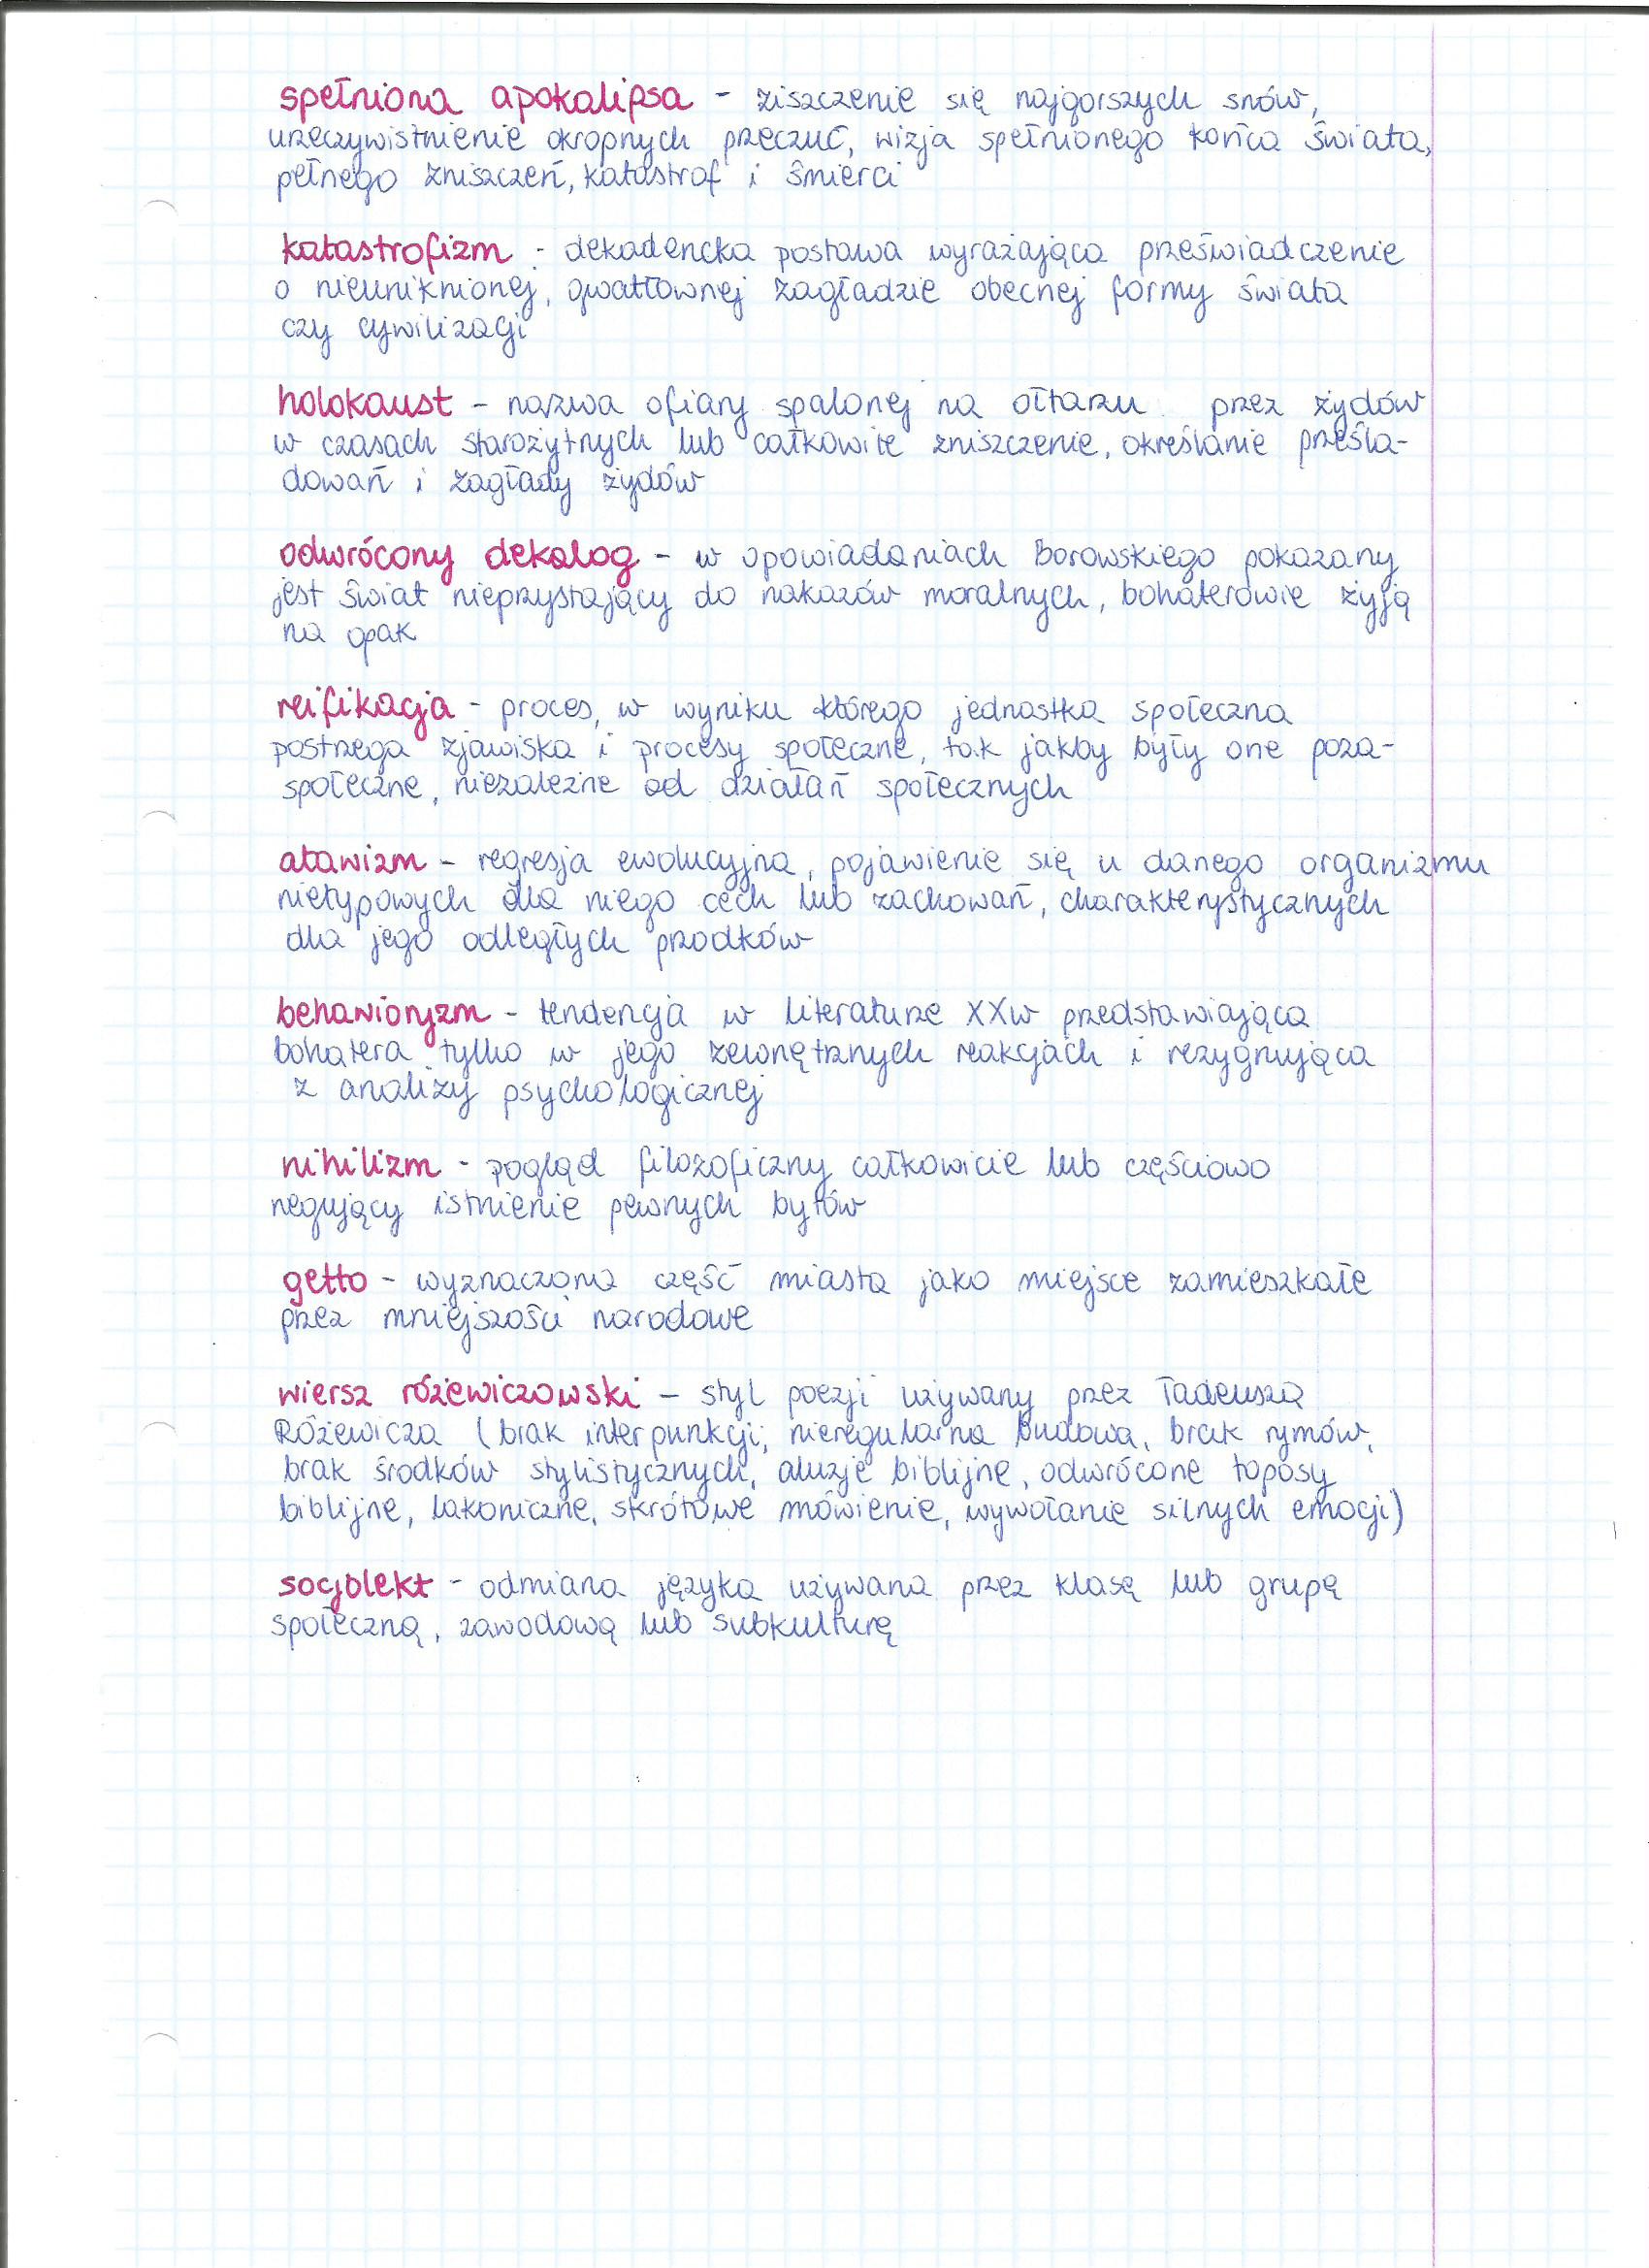 spełniona apokalipsa - ziszczenie się najgorszych snów,
urzeczywistnienie okropnych przeczuć, wizja spełnionego końca świata,
pełnego zniszczeń, katastrof i śmierci
katastrofizm - dekadencka postawa wyrażająca przeświadczenie
o nieuniknionej, gwałtownej zagładzie obecnej formy świata
czy cywilizacji
holokaust - nazwa ofiary spalonej na ołtarzu przez żydów
w czasach starożytnych lub całkowite zniszczenie, określanie prześla-
dowań i zagłady żydów
odwrócony dekalog - w opowiadaniach Borowskiego pokazany
jest świat nieprzystający do nakazów moralnych, bohaterowie żyją
na opak
reifikacja - proces, w wyniku którego jednostka społeczna
postrzega zjawiska i procesy społeczne, tak jakby były one poza-
społeczne, niezależne od działań społecznych
atawizm - regresja ewolucyjna, pojawienie się u danego organizmu
nietypowych dla niego cech lub zachowań, charakterystycznych
dla jego odległych przodków
behawioryzm - tendencja w literaturze XXw przedstawiająca
bohatera tylko w jego zewnętrznych reakcjach i rezygnująca
z analizy psychologicznej
nihilizm - pogląd filozoficzny całkowicie lub częściowo
negujący istnienie pewnych bytów
getto - wyznaczona część miasta jako miejsce zamieszkałe
przez mniejszości narodowe
wiersz różewiczowski - styl poezji używany przez Tadeusza
Różewicza (brak interpunkcji, nieregularna budowa, brak rymów,
brak środków stylistycznych, aluzje biblijne, odwrócone toposy
biblijne, lakoniczne, skrótowe mówienie, wywołanie silnych emocji)
socjolekt - odmiana języka używana przez klasę lub grupę
społeczną, zawodową lub subkulturę